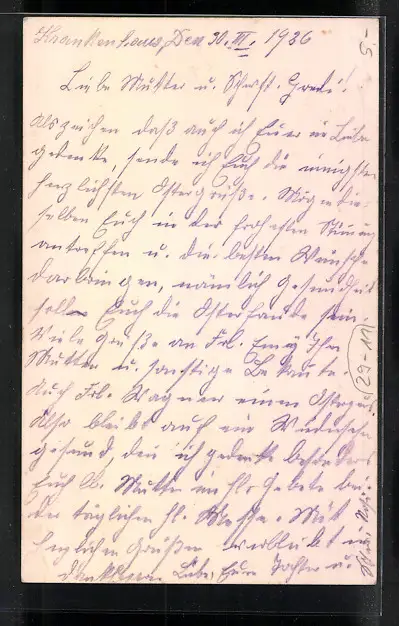 Krankenhaus, Den 30. III. 1936
Liebe Mutter u. Schwst. Gredi!
Als zeichen daß auch ich Euer in Liebe
gedenke, sende ich Euch die innigsten
herzlichsten Ostergrüße. Mögen die-
selben Euch in der frohesten Stimmung
antreffen u. die besten Wünsche
darbringen, nämlich Gesundheit
soll Euch die Osterfreude sein.
Viele Grüße an Frl. Emy Ihre
Mutter u. sonstige Bekannte
Auch Frl. Wagner einen Ostergruß.
Also bleibt auf ein Wiedersehn
gesund, den ich gedenke besonders
Euch lb. Mutter im hl. Gebete bei
der täglichen hl. Messe. Mit
herzlichen Grüßen verbleibt in
dankbarer Liebe, Eure Tochter u.
29-11